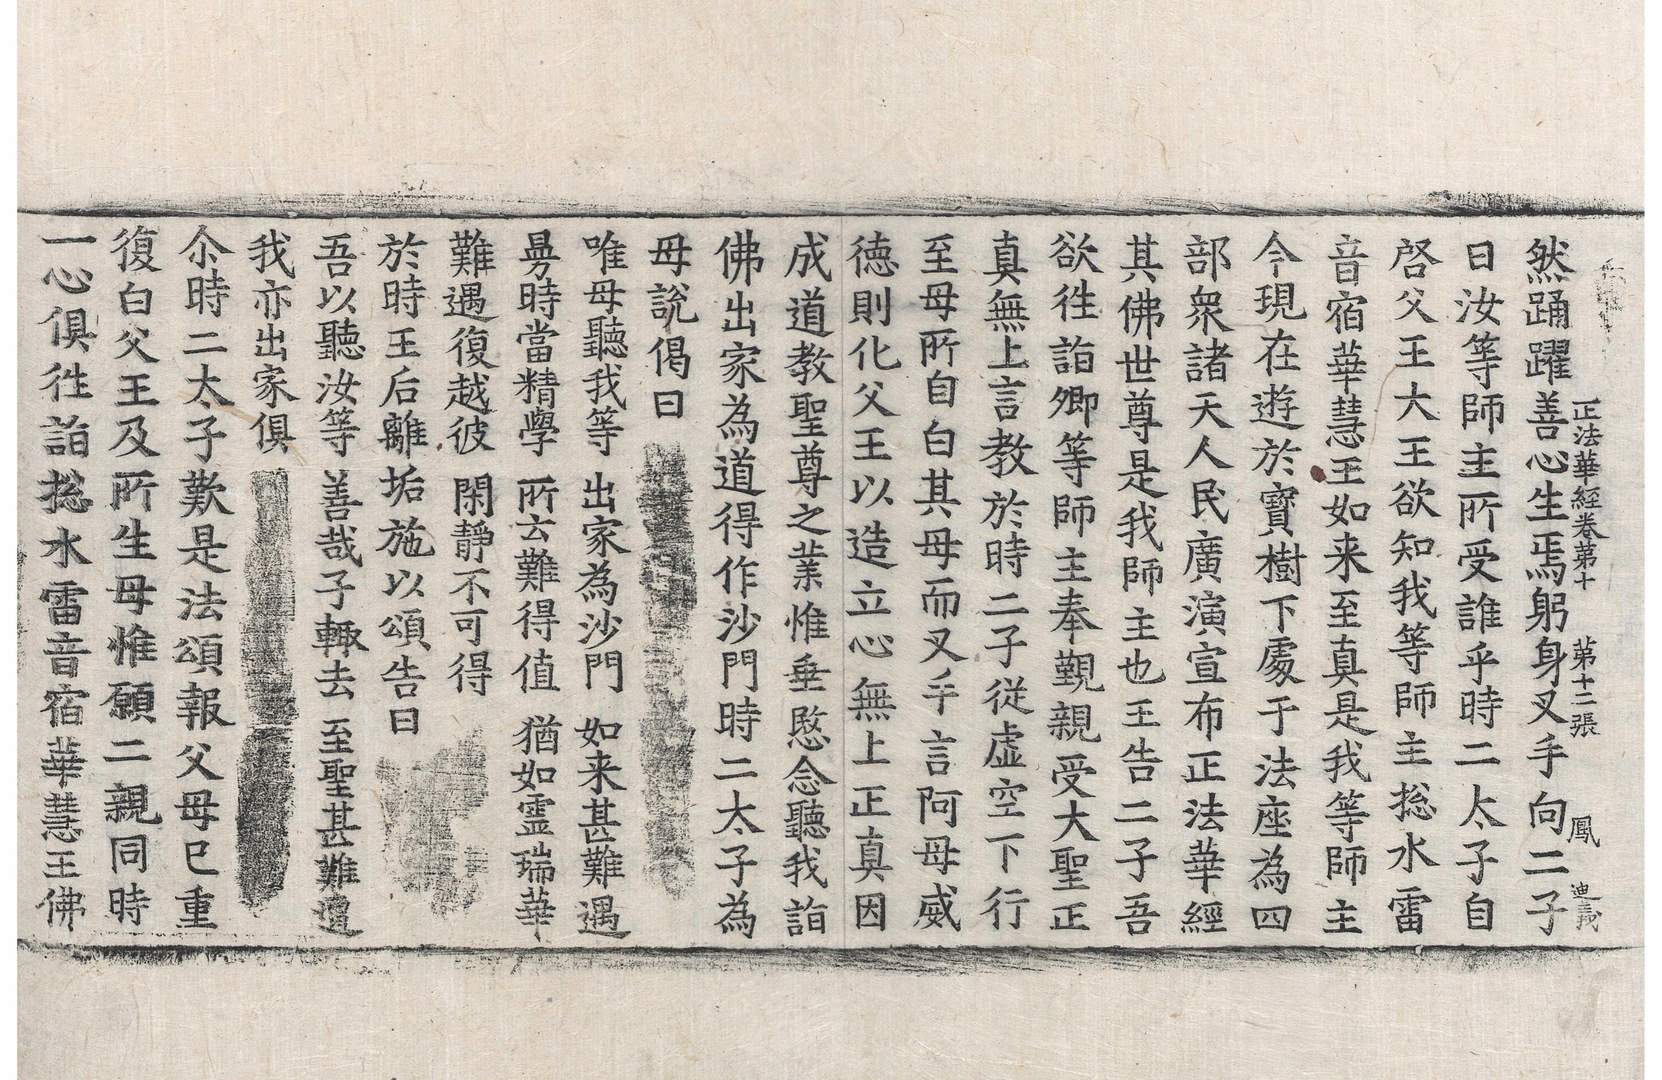 正法華經卷第十　第十二張　鳳　迪義
然踊躍善心生焉躬身叉手向二子
曰汝等師主所受誰乎時二太子自
啓父王大王欲知我等師主捴水雷
音宿華慧王如来至真是我等師主
今現在遊於寶樹下處于法座為四
部衆諸天人民廣演宣布正法華經
其佛世尊是我師主也王告二子吾
欲徃詣卿等師主奉覲親受大聖正
真無上言教於時二子從虚空下行
至母所自白其母而叉手言阿母威
德則化父王以造立心無上正真因
成道教聖尊之業惟垂愍念聽我詣
佛出家為道得作沙門時二太子為
母說偈曰
唯母聽我等　出家為沙門　如来甚難遇
曼時當精學　所云難得值　猶如靈瑞華
難遇復越彼　閑靜不可得
於時王后離垢施以頌告曰
吾以聽汝等　善哉子輙去　至聖甚難遇
我亦出家俱
尒時二太子歎是法頌報父母已重
復白父王及所生母惟願二親同時
一心俱徃詣捴水雷音宿華慧王佛